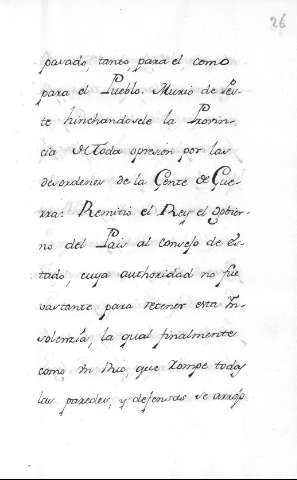 26
pasado, tanto, para el como
para el Pueblo. Murió de Pes-
te hinchandosele la Provin-
cia toda opresion por las
desordenes de la Gente de Gue-
rra: Remitió el Rey el gobier-
no del Pais al consejo de Es-
tado, cuya authoridad no fue
vastante para retener esta In-
solenzia, la qual finalmente
como un Rio, que Rompe todas
las paredes, y defensas se arrojó